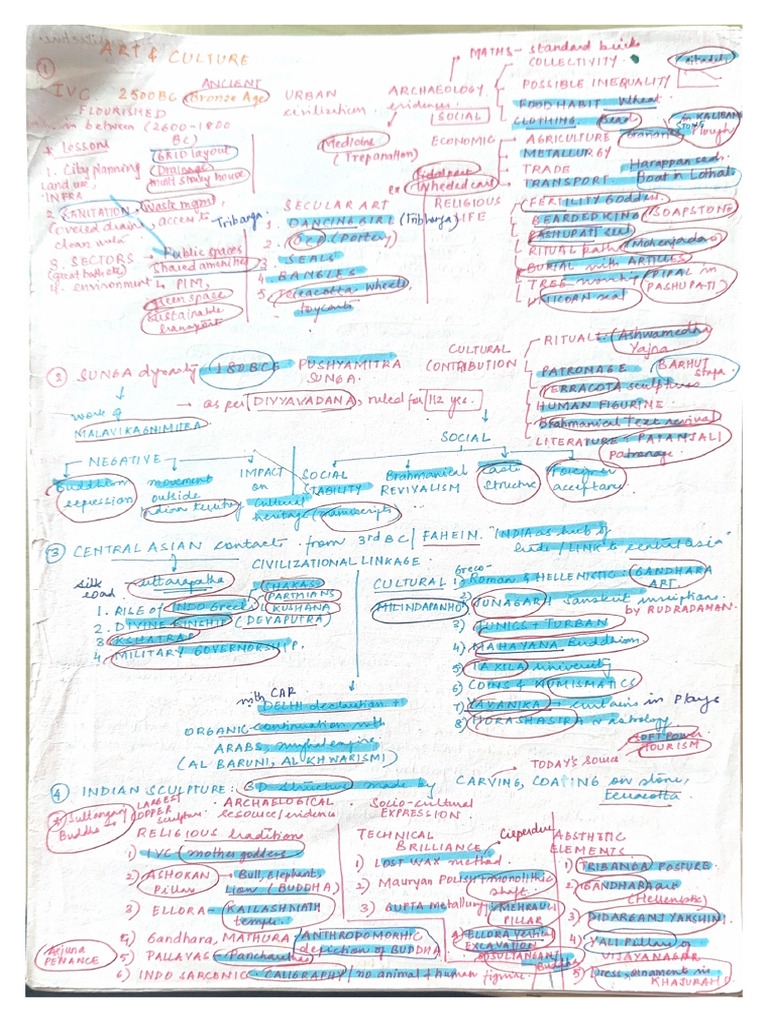 ART & CULTURE
①
IVC 2500BC Bronze Age
ANCIENT
FLOURISHED
in between (2600-1800 BC)
* Lessons
1. City planning
Land use,
INFRA
GRID layout
Drainage
multi storey house
2. SANITATION, Waste mgmt,
Covered drains, access to
clean water
3. SECTORS → Public spaces
(great bath etc) Shared amenities
4. environment → PIM,
green space
Sustainable
transport
URBAN
civilization
ARCHAEOLOGY
evidences
Medicine
(Trepanation)
SECULAR ART
Tribanga
1. DANCING GIRL (Tribhanga)
2. OCP (Pottery)
3. SEALS
4. BANGLES
5. Terracotta wheels
toycarts
MATHS - standard bricks
SOCIAL
COLLECTIVITY
Citadel
POSSIBLE INEQUALITY
FOOD HABIT Wheat
CLOTHING Bead
ECONOMIC
AGRICULTURE Granaries
in KALIBANGAN
Plough
METALLURGY
TRADE Harappan seals
TRANSPORT Boat in Lothal
Tidal port
Wheeled cart
RELIGIOUS
LIFE
FERTILITY Goddess
BEARDED KING SOAPSTONE
PASHUPATI seal
RITUAL bath (Mohenjodaro)
BURIAL with ARTICLES
TREE worship (PIPAL in
PASHUPATI)
UNICORN seal
② SUNGA dynasty 180BCE PUSHYAMITRA
SUNGA.
→ as per DIVYAVADANA, ruled for 112 yrs.
work of
MALAVIKAGNIMITRA
CULTURAL
CONTRIBUTION
RITUALS (Ashwamedha
Yajna
PATRONAGE BARHUT
Stupa
TERRACOTA sculptures
HUMAN FIGURINE
Brahmanical Text revival
LITERATURE - PATANJALI
patronage
NEGATIVE
Buddhism
repression
movement
outside
Indian territory
IMPACT
on
Cultural
heritage (manuscripts)
SOCIAL
SOCIAL
STABILITY
Brahmanical
REVIVALISM
Caste
Structure
Foreigner
acceptance
③ CENTRAL ASIAN contacts from 3rd BC / FAHEIN. "INDIA as hub of
trade / LINK to central asia"
CIVILIZATIONAL LINKAGE
silk
road
uttarapatha
1. RISE of INDO Greek
SHAKAS
PARTHIANS
KUSHANA
2. DIVINE KINSHIP (DEVAPUTRA)
3. KSHATRAP
4. MILITARY GOVERNORSHIP.
CULTURAL
MILINDAPANHO
1) Greco-Roman & HELLENISTIC: GANDHARA
ART
2) JUNAGARH Sanskrit inscriptions
by RUDRADAMAN.
3) TUNICS + TURBAN
4) MAHAYANA Buddhism
5) TAXILA university
6) COINS & NUMISMATICS
7) YAVANIKA - curtains in Plays
8) HORASHASTRA → astrology
SOFT POWER
TOURISM
TODAY'S Source
with CAR
DELHI declaration +
ORGANIC continuation with
ARABS, mughal empire
(AL BARUNI, AL KHWARISMI)
④ INDIAN SCULPTURE: 3D structure made by CARVING, COATING on stone,
terracotta
* Sultanganj
Buddha →
LARGEST
COPPER
Sculpture
ARCHAELOGICAL
resource/evidence
Socio-cultural
EXPRESSION.
RELIGIOUS traditions
1) IVC (mother goddess
2) ASHOKAN
Pillar
→ Bull, Elephant,
Lion (BUDDHA)
3) ELLORA - KAILASHNATH
temple
4) Gandhara, MATHURA - ANTHROPOMORHIC
depiction of BUDDHA
5) PALLAVAS - Panchrathas
Arjuna
PENANCE
6) INDO SARCENIC - CALIGRAPHY / no animal + human figure.
TECHNICAL
BRILLIANCE
Cireperdue
1) LOST WAX method
2) Mauryan Polish + monolithic
shaft.
3) GUPTA metallurgy MEHRAULI
PILLAR
4) ELLORA vertical
EXCAVATION
5) SULTANGANJ
Buddha
AESTHETIC
ELEMENTS
1) TRIBANGA POSTURE
2) GANDHARA art
(Hellenistic)
3) DIDARGANJ YAKSHINI
4) YALI Pillars of
VIJAYANAGAR
5) Dress, ornament in
KHAJURAHO